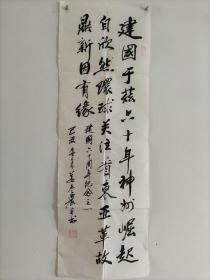 建國于兹六十年神州崛起
自欣然環球关注首東亚革故
鼎新因有缘
建國六十周年纪念之一